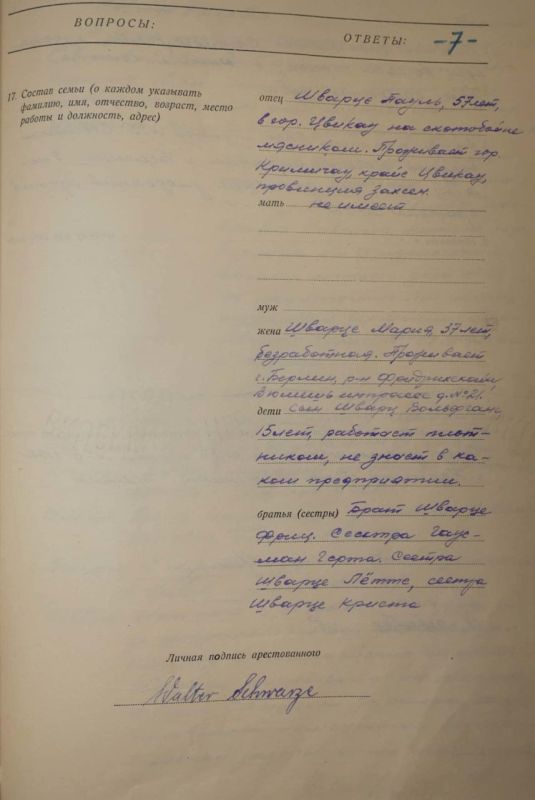 ВОПРОСЫ:
ОТВЕТЫ: -7-
17. Состав семьи (о каждом указывать
фамилию, имя, отчество, возраст, место
работы и должность, адрес)
отец Шварце Пауль, 57 лет,
в гор. Цвикау на скотобойне
мясником. Проживает гор.
Кримичау, крайс Цвикау,
провинция Заксен.
мать не имеет
муж
жена Шварце Мария, 37 лет,
безработная. Проживает
г. Берлин, р-н
д. № 21.
дети сын Шварц Вольфганг,
15 лет, работает плот-
ником, не знает в ка-
ком предприятии.
братья (сестры) Брат Шварце
Фриц. Сестра Гаус-
ман Герта. Сестра
Шварце Лётте, сестра
Шварце Криста
Личная подпись арестованного
Walter Schwarze